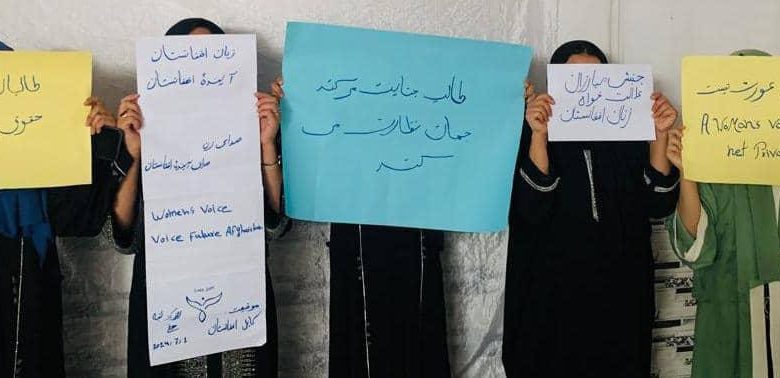 طالبان
حقوق
زنان افغانستان
آیندهٔ افغانستان
صدای زن
صدای آیندهٔ افغانستان
Women's Voice
Voice Future Afghanistan
موقعیت
کابل افغانستان
طالب جنایت میکند
جهان نظارت می
کند
جنبش مبارزان
عدالت خواه
زنان افغانستان
عورت نیست
A Woman's vo
not Priva